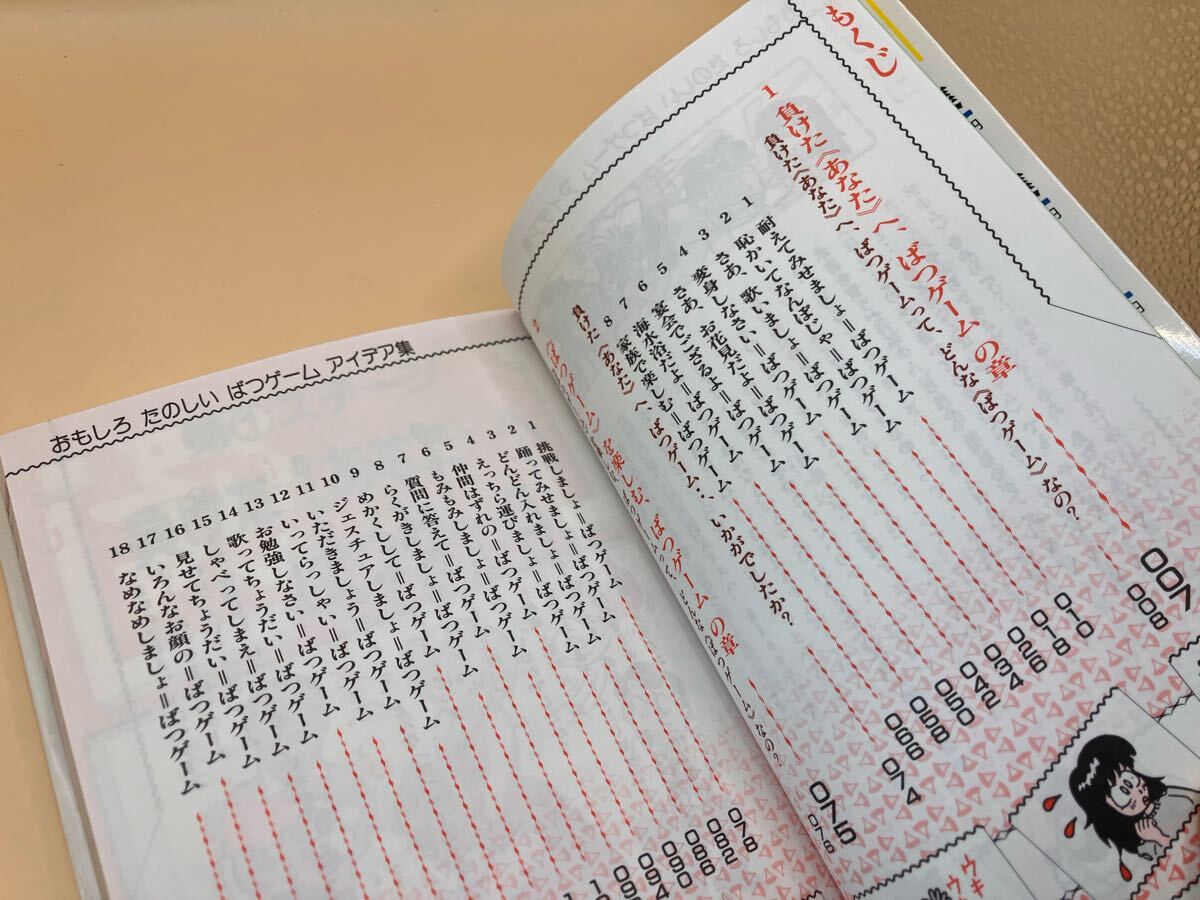 もくじ
1 負けた《あなた》へ、ばつゲームの章 007
負けた《あなた》へ、ばつゲームって、どんな《ばつゲーム》なの? 008
1 耐えてみせましょ=ばつゲーム 010
2 恥かいてなんぼじゃ=ばつゲーム 018
3 さあ、歌いましょ=ばつゲーム 026
4 変身しなさい=ばつゲーム 034
5 さあ、お花見だよ=ばつゲーム 042
6 宴会でござるよ=ばつゲーム 050
7 海水浴だよ=ばつゲーム 058
8 家族で楽しむ=ばつゲーム 066
負けた《あなた》へ、ばつゲーム…、いかがでしたか? 074
2 《ばつゲーム》を楽しむ、ばつゲームの章 075
《ばつゲーム》なの? 076
ウキ
おもしろ たのしい ばつゲーム アイデア集
1 挑戦しましょ=ばつゲーム 078
2 踊ってみせましょ=ばつゲーム 082
3 どんどん入れましょ=ばつゲーム 086
4 えっちら運びましょ=ばつゲーム 090
5 仲間はずれの=ばつゲーム
6 もみもみしましょ=ばつゲーム
7 質問に答えて=ばつゲーム
8 らくがきしましょ=ばつゲーム
9 めかくしして=ばつゲーム
10 ジェスチュアしましょ=ばつゲーム
11 いただきましょう=ばつゲーム
12 いってらっしゃい=ばつゲーム
13 お勉強しなさい=ばつゲーム
14 歌ってちょうだい=ばつゲーム
15 しゃべってしまえ=ばつゲーム
16 見せてちょうだい=ばつゲーム
17 いろんなお顔の=ばつゲーム
18 なめなめしましょ=ばつゲーム